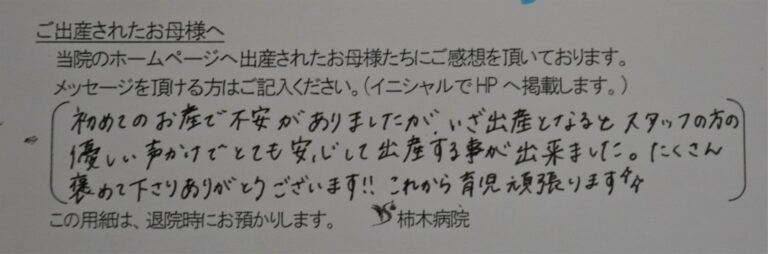 ご出産されたお母様へ
当院のホームページへ出産されたお母様たちにご感想を頂いております。
メッセージを頂ける方はご記入ください。(イニシャルでHPへ掲載します。)
初めてのお産で不安がありましたが、いざ出産となるとスタッフの方の
優しい声かけでとても安心して出産する事が出来ました。たくさん
褒めて下さりありがとうございます!! これから育児頑張ります
この用紙は、退院時にお預かりします。 柿木病院